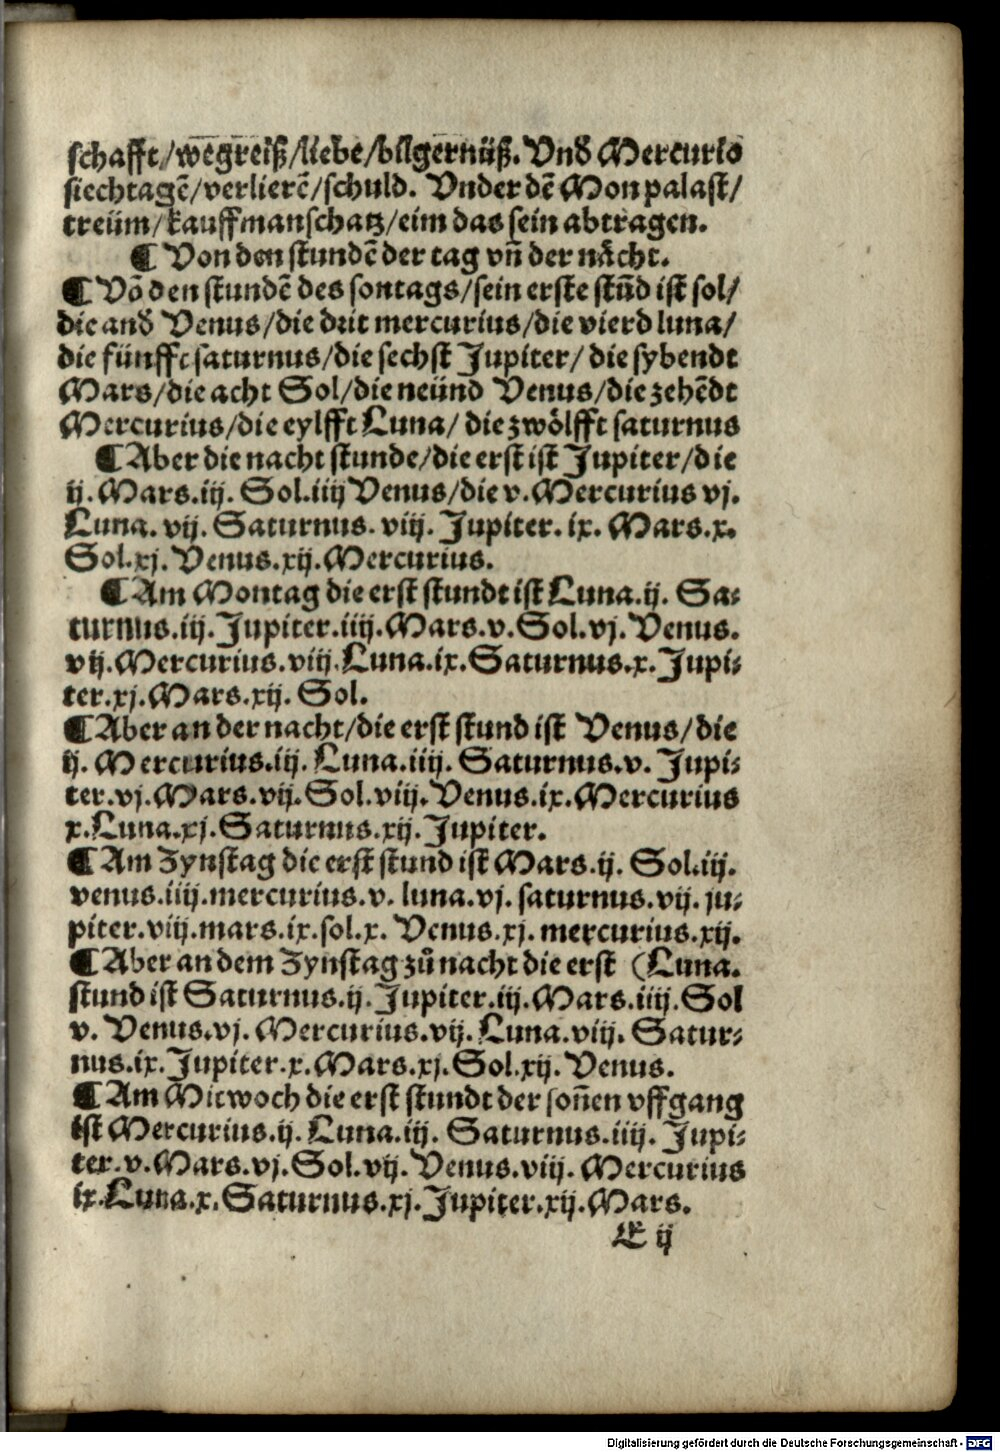 schafft/wegreiß/liebe/bilgernüß. Vnd Mercurio
siechtagē/verlierē/schuld. Vnder dē Mon palast/
treüm/kauffmanschatz/eim das sein abtragen.
¶ Von den stundē der tag vn̄ der nächt.
¶ Vō den stundē des sontags/sein erste stūd ist sol/
die and Venus/die drit mercurius/die vierd luna/
die fünfft saturnus/die sechst Jupiter/ die sybendt
Mars/die acht Sol/die neünd Venus/die zehēdt
Mercurius/die eylfft Luna/ die zwölfft saturnus
¶ Aber die nacht stunde/die erst ist Jupiter/die
ij. Mars.iij. Sol.iiij Venus/die v. Mercurius vj.
Luna. vij. Saturnus. viij. Jupiter. ix. Mars.x.
Sol.xj. Venus.xij. Mercurius.
¶ Am Montag die erst stundt ist Luna.ij. Sa⸗
turnus.iij. Jupiter.iiij. Mars.v. Sol.vj. Venus.
vij. Mercurius.viij. Luna.ix. Saturnus.x. Jupi⸗
ter.xj. Mars.xij. Sol.
¶ Aber an der nacht/die erst stund ist Venus/die
ij. Mercurius.iij. Luna.iiij. Saturnus.v. Jupi⸗
ter.vj. Mars.vij. Sol.viij. Venus.ix. Mercurius
x. Luna.xj. Saturnus.xij. Jupiter.
¶ Am Zynstag die erst stund ist Mars.ij. Sol.iij.
venus.iiij.mercurius.v. luna.vj. saturnus.vij. ju⸗
piter.viij.mars.ix.sol.x. Venus.xj. mercurius.xij.
¶ Aber an dem Zynstag zů nacht die erst (Luna.
stund ist Saturnus.ij. Jupiter.iij. Mars.iiij. Sol
v. Venus.vj. Mercurius.vij. Luna.viij. Satur⸗
nus.ix. Jupiter.x. Mars.xj. Sol.xij. Venus.
¶ Am Mitwoch die erst stundt der son̄en vffgang
ist Mercurius.ij. Luna.iij. Saturnus.iiij. Jupi⸗
ter.v. Mars.vj. Sol.vij. Venus.viij. Mercurius
ix. Luna.x. Saturnus.xj. Jupiter.xij. Mars.
E ij
Digitalisierung gefördert durch die Deutsche Forschungsgemeinschaft - DFG